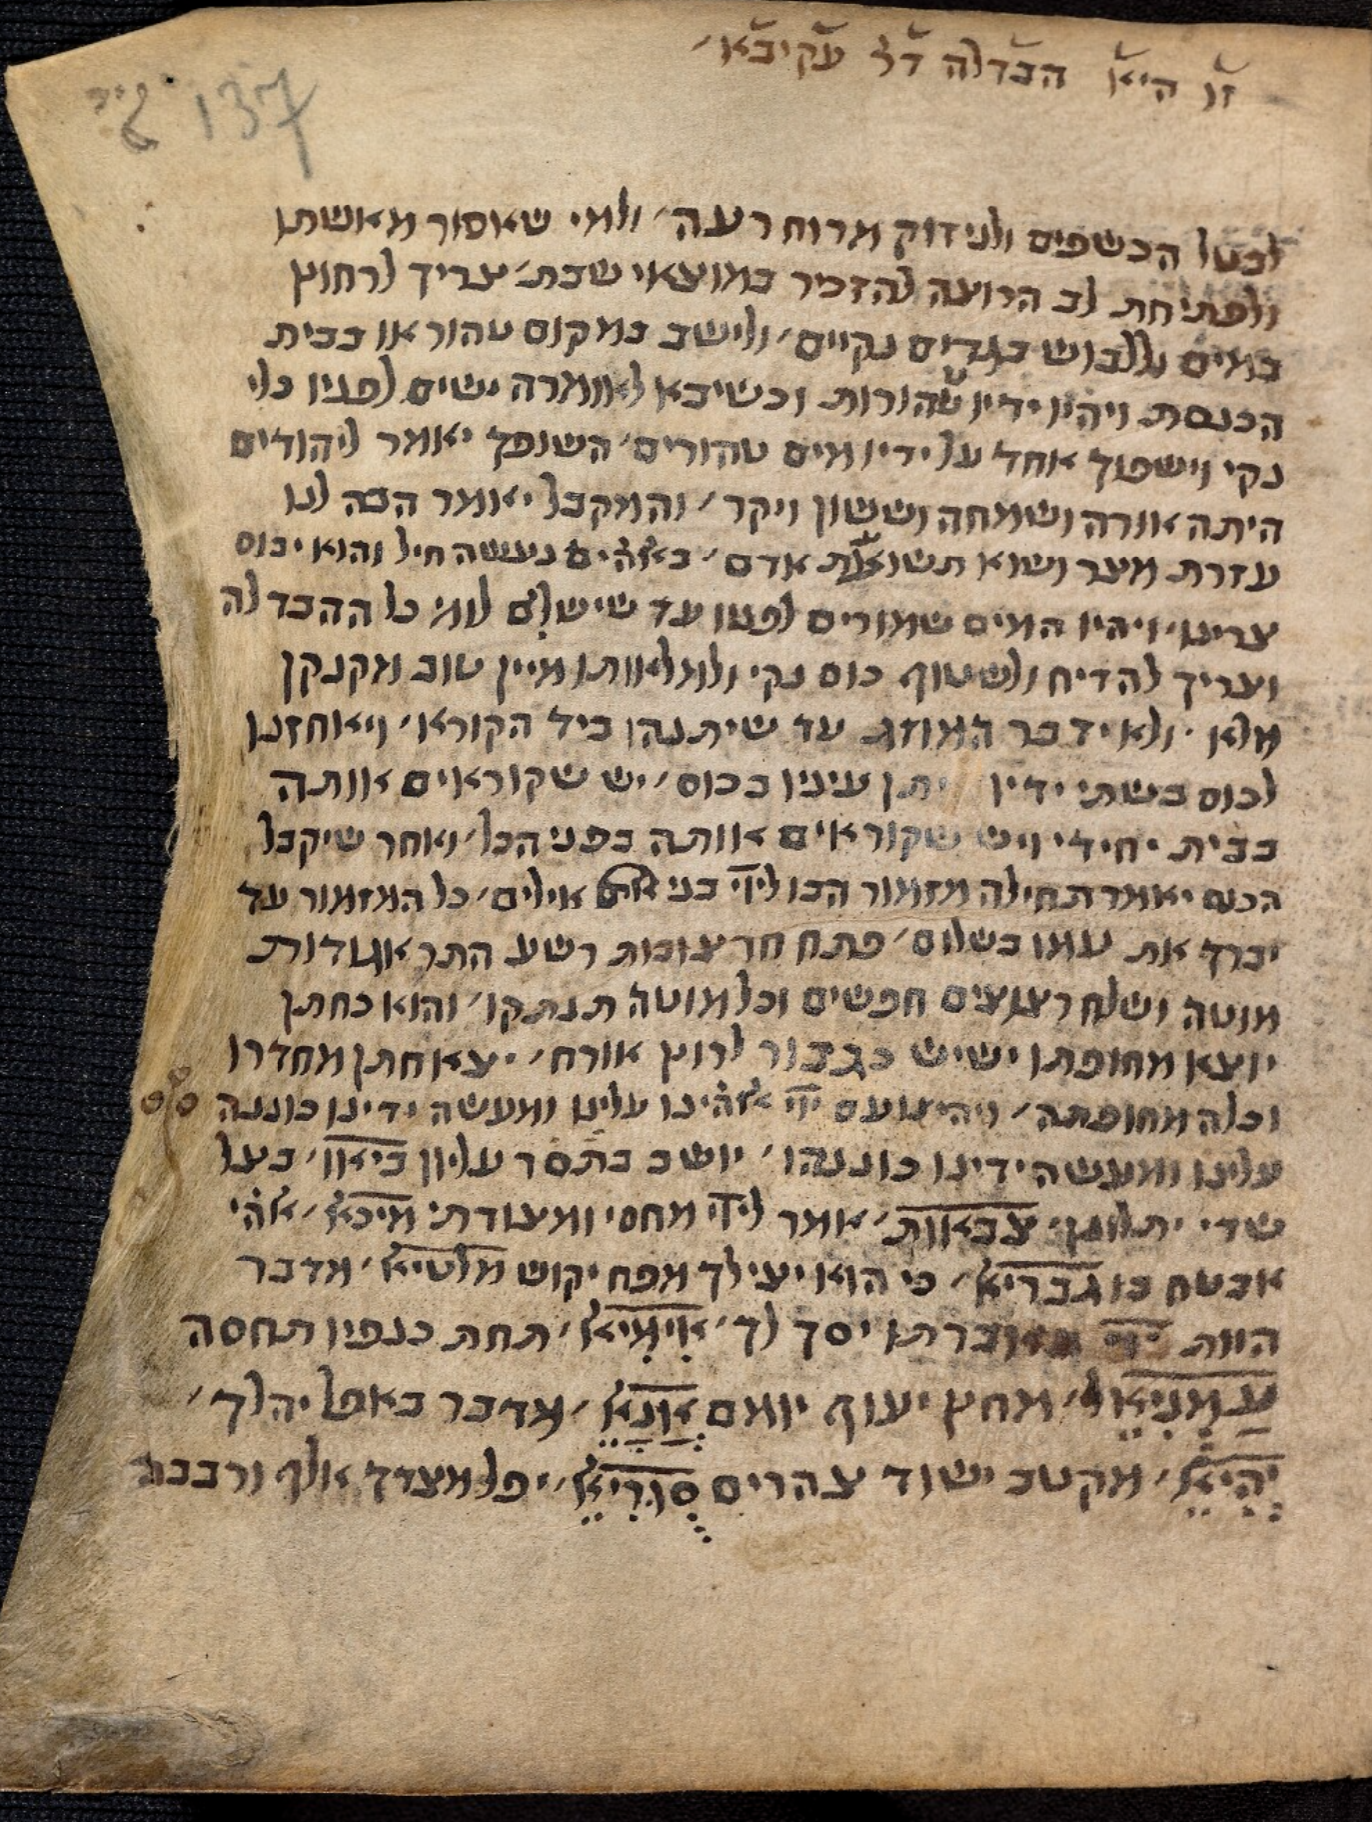 זו היא הבדלה דר עקיבא׳
137
לבטל הכשפים ולנידוק מרוח רעה׳ ולמי שאסור מאשתו
ולפתיחת לב הרוצה להזכיר במוצאי שבת׳ צריך לרחוץ
במים וללבוש בגדים נקיים׳ ולישב במקום טהור או בבית
הכנסת ויהיו ידיו טהורות וכשיבא לאומרה ישים לפניו כלי
נקי וישפוך אחד על ידיו מים טהורים׳ השופך יאמר ליהודים
היתה אורה ושמחה וששון ויקר׳ והמקבל יאומר הבה לנו
עזרת מצר ושוא תשועת אדם׳ באלהים נעשה חיל והוא יבוס
צרינו׳ ויהיו המים שמורים לפניו עד שישלם לומ׳ כל ההבדלה
וצריך להדיח ולשטוף כוס נקי ולמלאותו מיין טוב מקנקן
מלא׳ ולא ידבר המוזג עד שיתנהו ביד הקורא׳ ויאוחזנו
לכוס בשתי ידיו יתן עיניו בכוס׳ יש שקוראים אותה
בבית יחידי ויש שקוראים אותה בפני הכל׳ ואחר שיקבל
הכוס יאמר תחילה מזמור הבו לייי בני אילים׳ כל המזמור עד
יברך את עמו בשלום׳ פתח חרצובות רשע התר אגודות
מוטה ושלח רצוצים חפשים וכל מוטה תנתקו׳ והוא כחתן
יוצא מחופתו ישיש כגבור לרוץ אורח׳ יצא חתן מחדרו
וכלה מחופתה׳ ויהי נועם ייי אלהינו עלינו ומעשה ידינו כוננה
עלינו ומעשה ידינו כוננהו׳ יושב בסתר עליון ביאו׳ בצל
שדי יתלונן׳ צבאות׳ אומר לייי מחסי ומצודתי מיכאל׳ אלהי
אבטח בו גבריאל׳ כי הוא יצילך מפח יקוש מלטיאל׳ מדבר
הוות באברתו יסך לך׳ אימיאל׳ תחת כנפיו תחסה
עמניאל׳ מחץ יעוף יומם אונאל׳ מדבר באפל יהלך׳
יהיאל׳ מקטב ישוד צהרים סגריאל׳ יפל מצדך אלף ורבבה